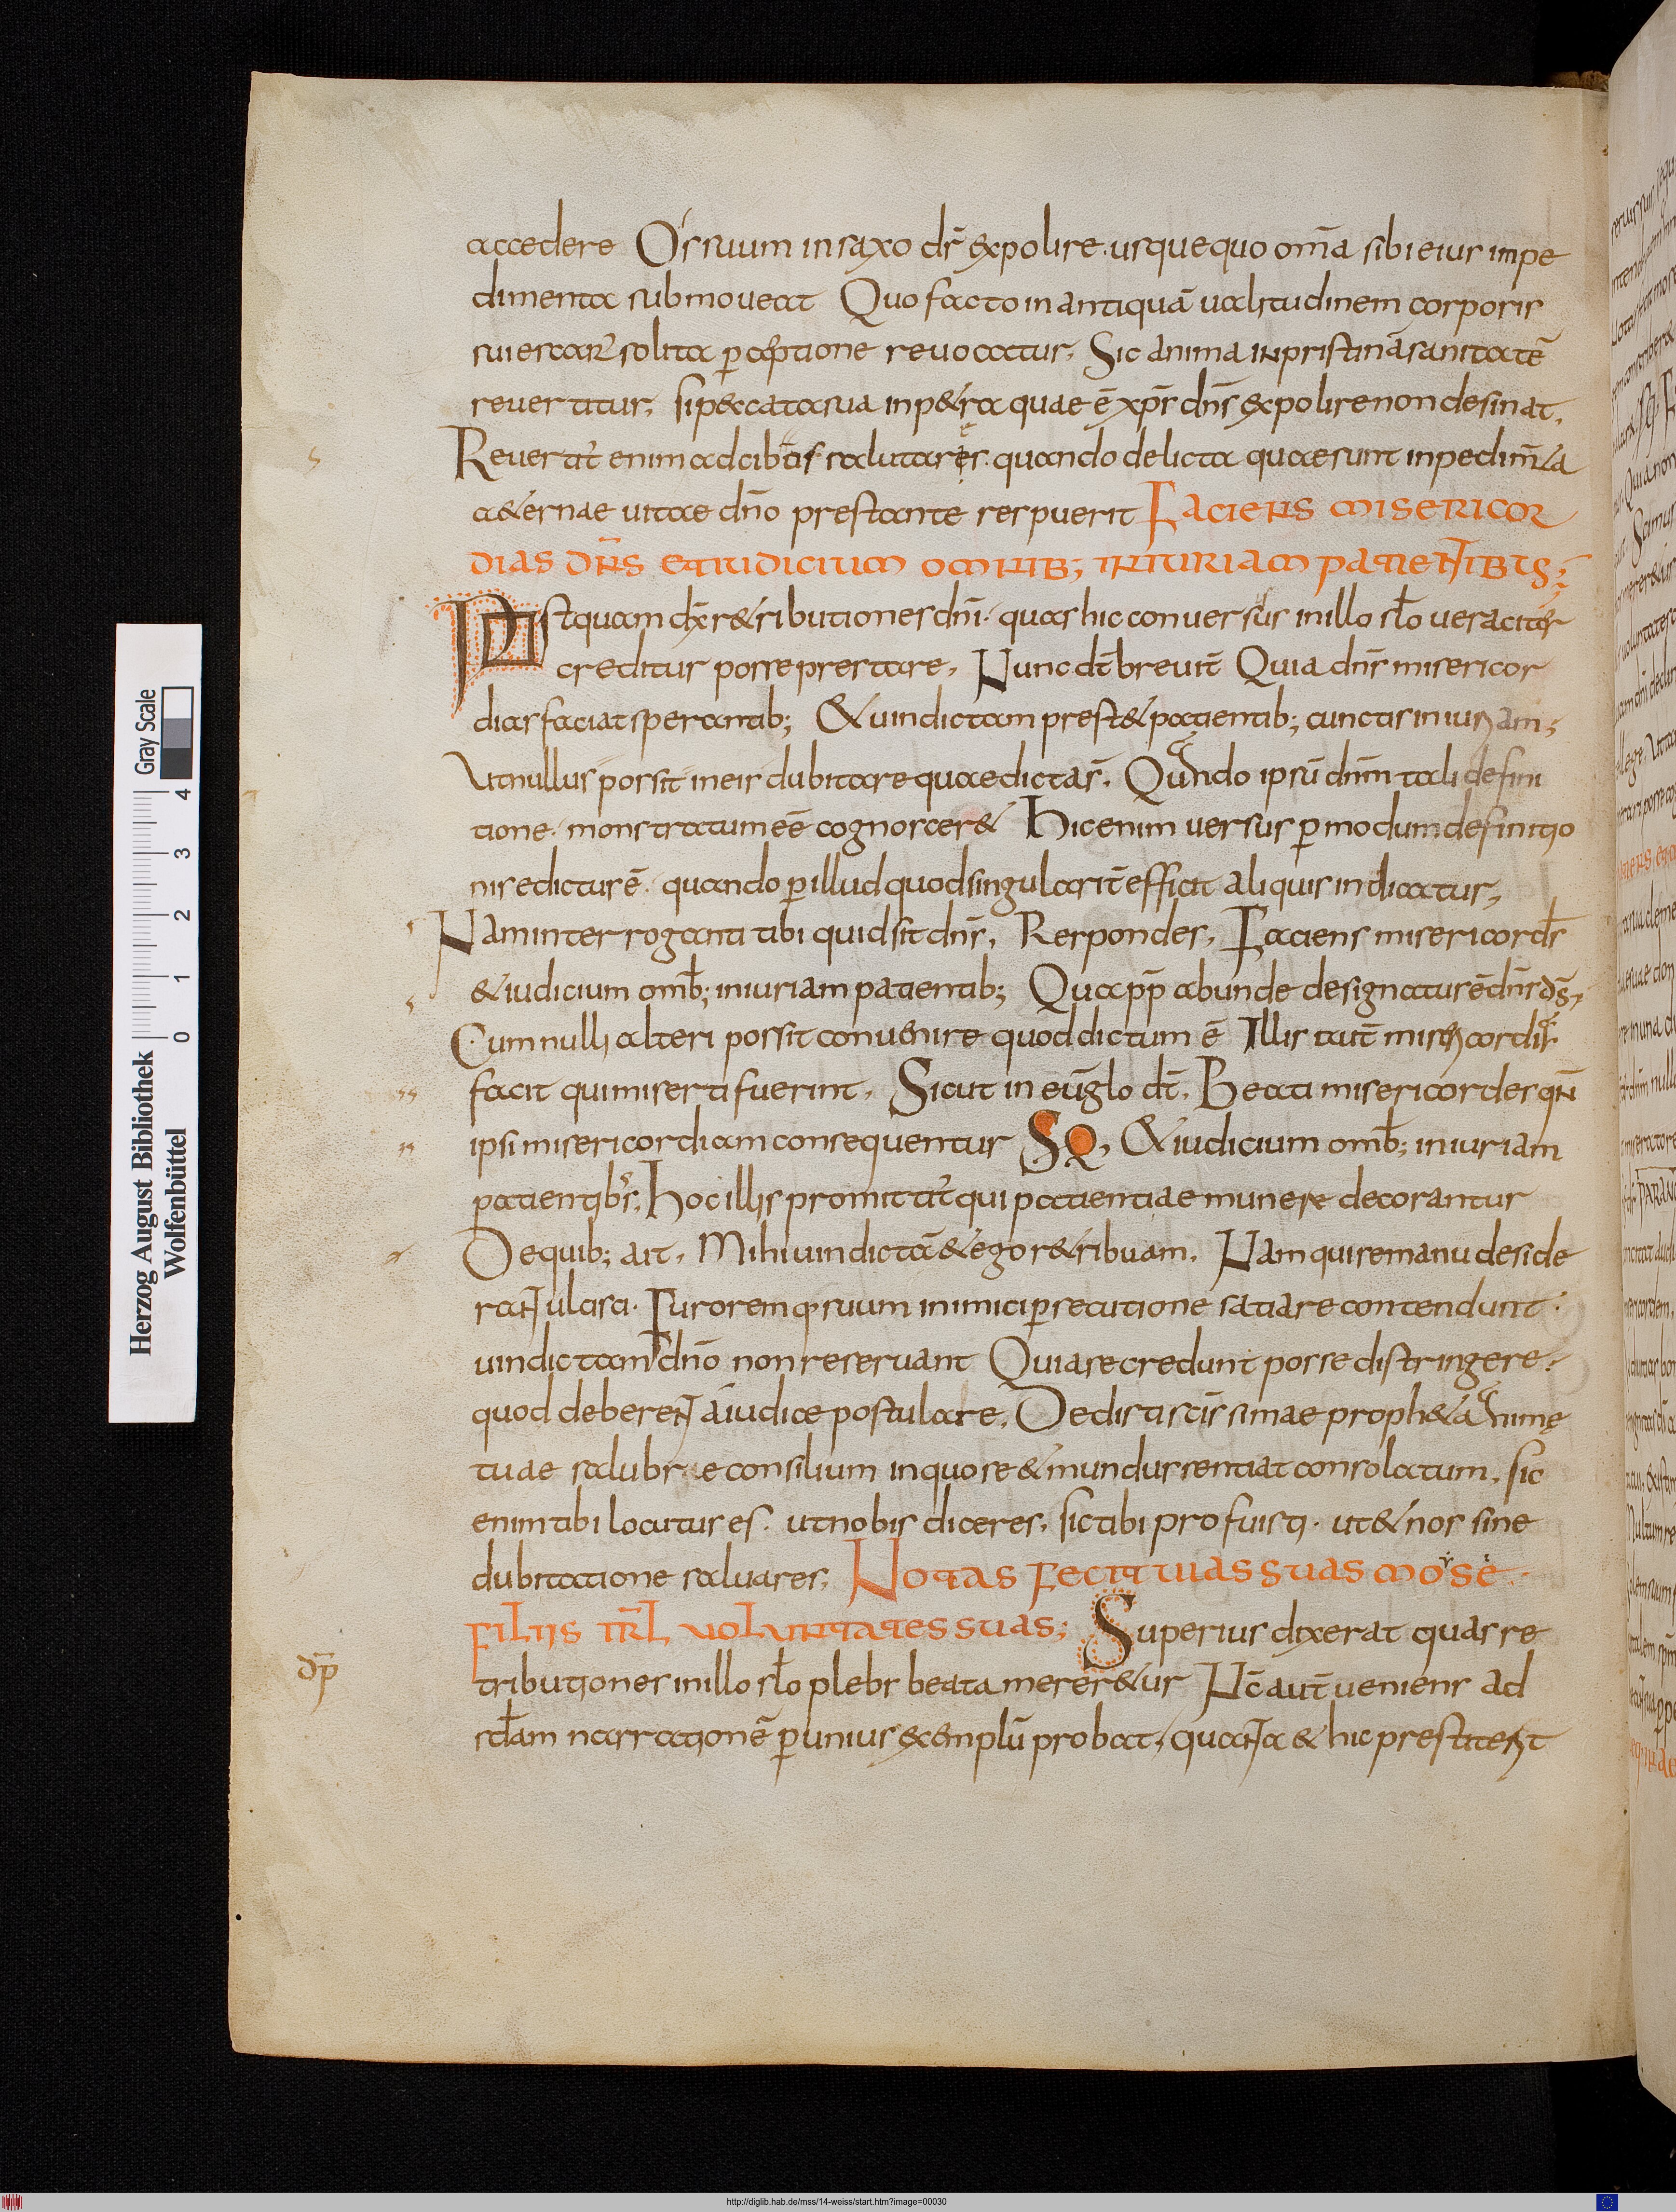 accedere Os suum in saxo dr̄ expolire. usquequo om̄a sibi eius impe
dimenta submoueat Quo facto in antiquā ualitudinem corporis
sui escarꝝ solita ꝑceptione reuocatur, Sic anima in pristinā sanitatē
reuertitur, si peccata sua in petra quae ē xp̄s dn̄s expolire non desinat,
Reuertit̄ enim ad cibos salutares. quando delicta quae sunt inpedim̄ta
aeternae uitae dn̄o prestante respuerit FACIENS MISERICOR
DIAS DN̄S ET IUDICIUM OMNIB; INIURIAM PATIENTIBUS;
Postquam dix̄ retributiones dn̄i. quas hic conuersus in illo sc̄lo ueraciter
creditur posse prestare, Nunc dt̄ breuit̄ Quia dn̄s misericor
dias faciat sperantib; & uindictam prestet patientib; cunctis iniuriam;
Ut nullus possit in eis dubitare quae dicta s̄, Quando ipsū dn̄m tali defini
tione. monstratum eē cognosceret Hic enim uersus ꝑ modum definitio
nis edictus ē. quando ꝑ illud quod singularit̄ efficit aliquis indicatur,
Nam interroganti tibi quid sit dn̄s, Respondes, Faciens misericords̄
& iudicium omb̄; iniuriam patientib; Quapp̄ abunde designatus ē dn̄s ds̄,
Cum nulli alteri possit conuenire quod dictum ē Illis aut̄ misericordias
facit qui miserti fuerint, Sicut in euḡlo dt̄, Beati misericordes qn̄
ipsi misericordiam consequentur SQ, & iudicium omb̄; iniuriam
patientibus, hoc illis promittit̄ qui patientiae munere decorantur
De quib; ait, Mihi uindictā & ego retribuam, Nam qui se manu deside
rant ulcisci. Furoremq. suum inimici ꝑsecutione satiare contendunt.
uindictam dn̄o non reseruant Quia se credunt posse distringere.
quod deberent a iudice postulare, Dedisti sc̄issimae propheta animę
tuae salubre consilium in quo se & mundus sentiat consolatum, sic
enim tibi locutus es. ut nobis diceres, sic tibi profuisti. ut & nos sine
dubitatione saluares, NOTAS FECIT UIAS SUAS MOSE
FILIIS IRL̄ UOLUNTATES SUAS; Superius dixerat quas re
tributiones in illo sc̄lo plebs beata mereretur Nc̄ aut̄ ueniens ad
scd̄am narrationē ꝑ unius exemplū probat, quanta & hic prestiterit
dp̄
Herzog August Bibliothek
Wolfenbüttel
Gray Scale
0 1 2 3 4
http://diglib.hab.de/mss/14-weiss/start.htm?image=00030